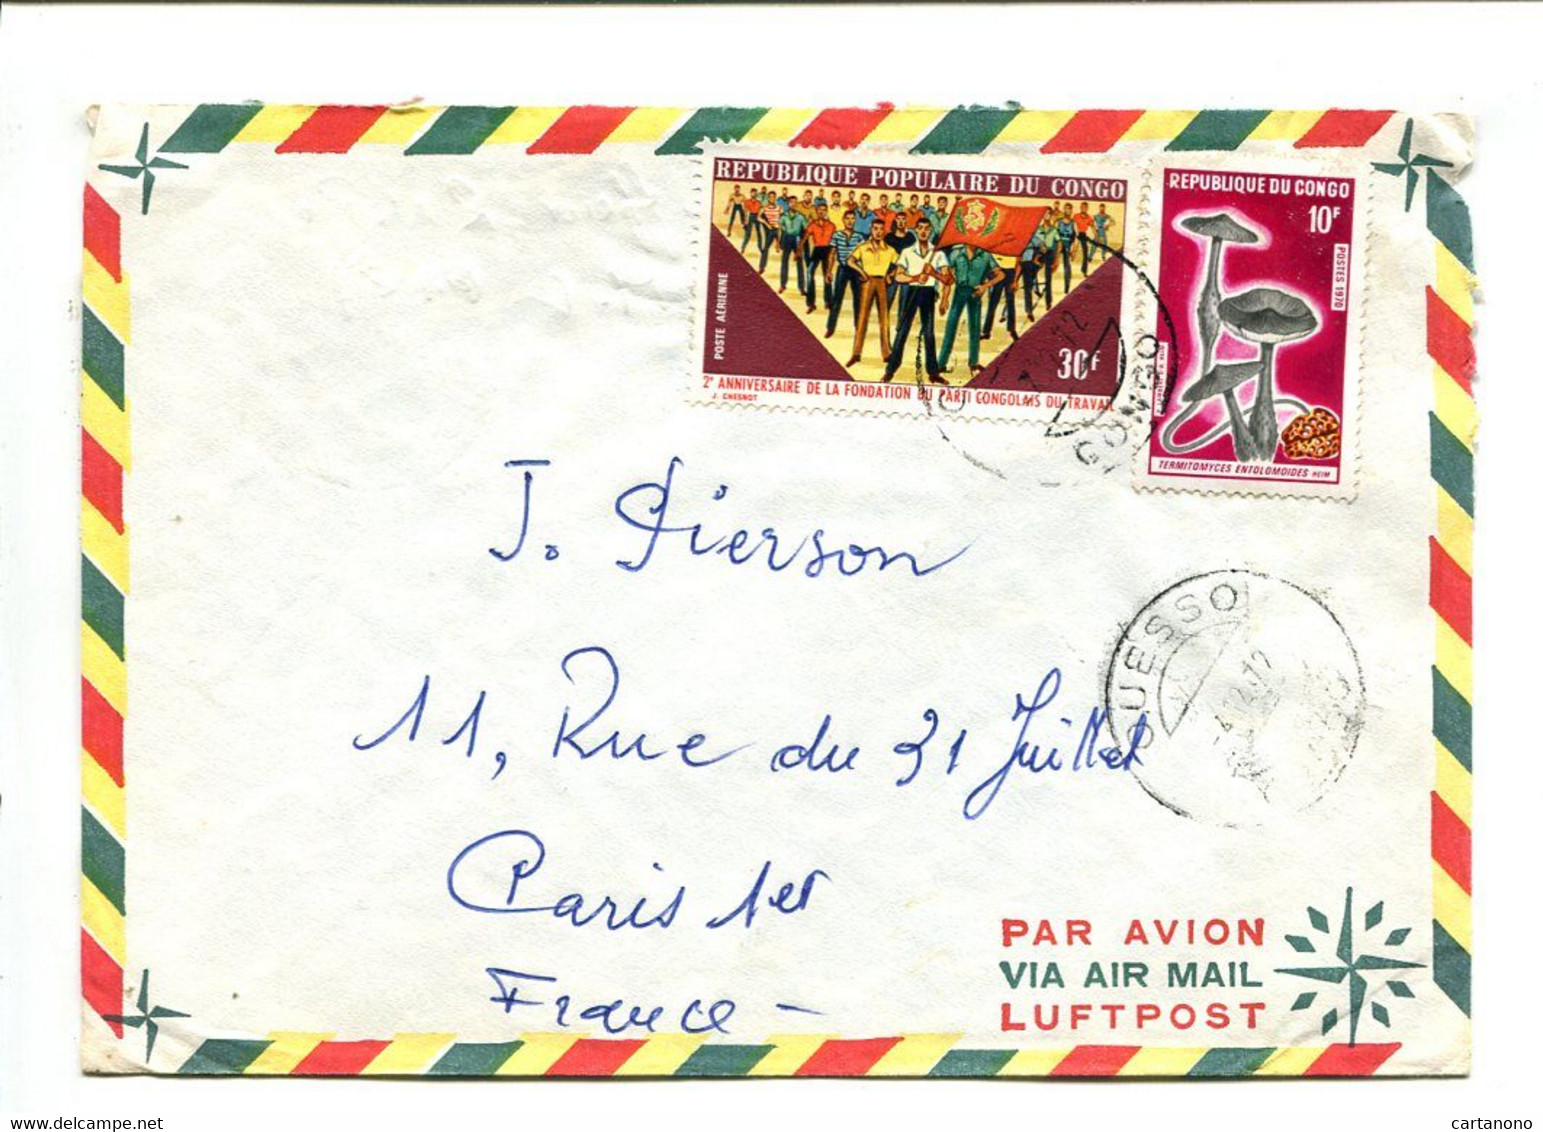 REPUBLIQUE POPULAIRE DU CONGO
POSTE AÉRIENNE
30F
2e ANNIVERSAIRE DE LA FONDATION DU PARTI CONGOLAIS DU TRAVAIL
J. CHESNOT
REPUBLIQUE DU CONGO
10F
POSTES 1970
TERMITOMYCES ENTOLOMOIDES HEIM
CONGO
J. Pierson
OUESSO
11, Rue du 31 Juillet
Paris 1er
France -
PAR AVION
VIA AIR MAIL
LUFTPOST
www.delcampe.net
cartanono